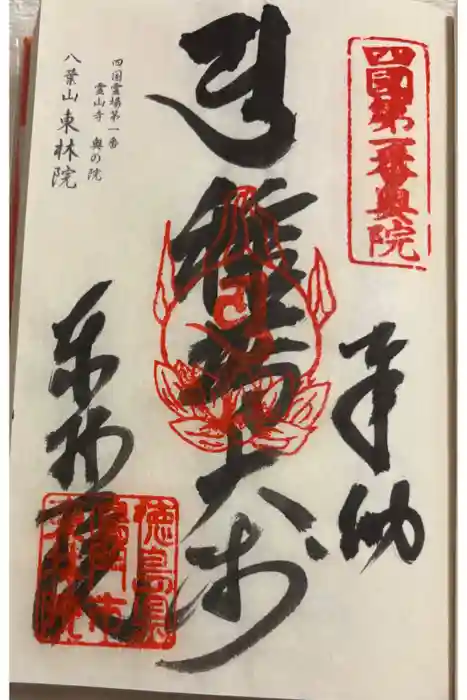 四国第一番奥院
奉納
種蒔大師
四国霊場第一番
霊山寺 奥の院
八葉山東林院
東林院
徳島県
鳴門市
東林院